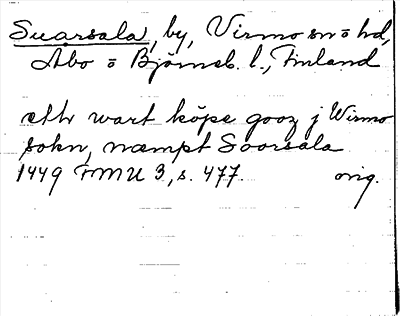 Suarsala, by, Virmo sn o hd,
Åbo o Björneb. l., Finland
ett wart köpe gooz j Wirmo
sokn, næmpt Soorsala
1449 FMU 3, s. 477. orig.